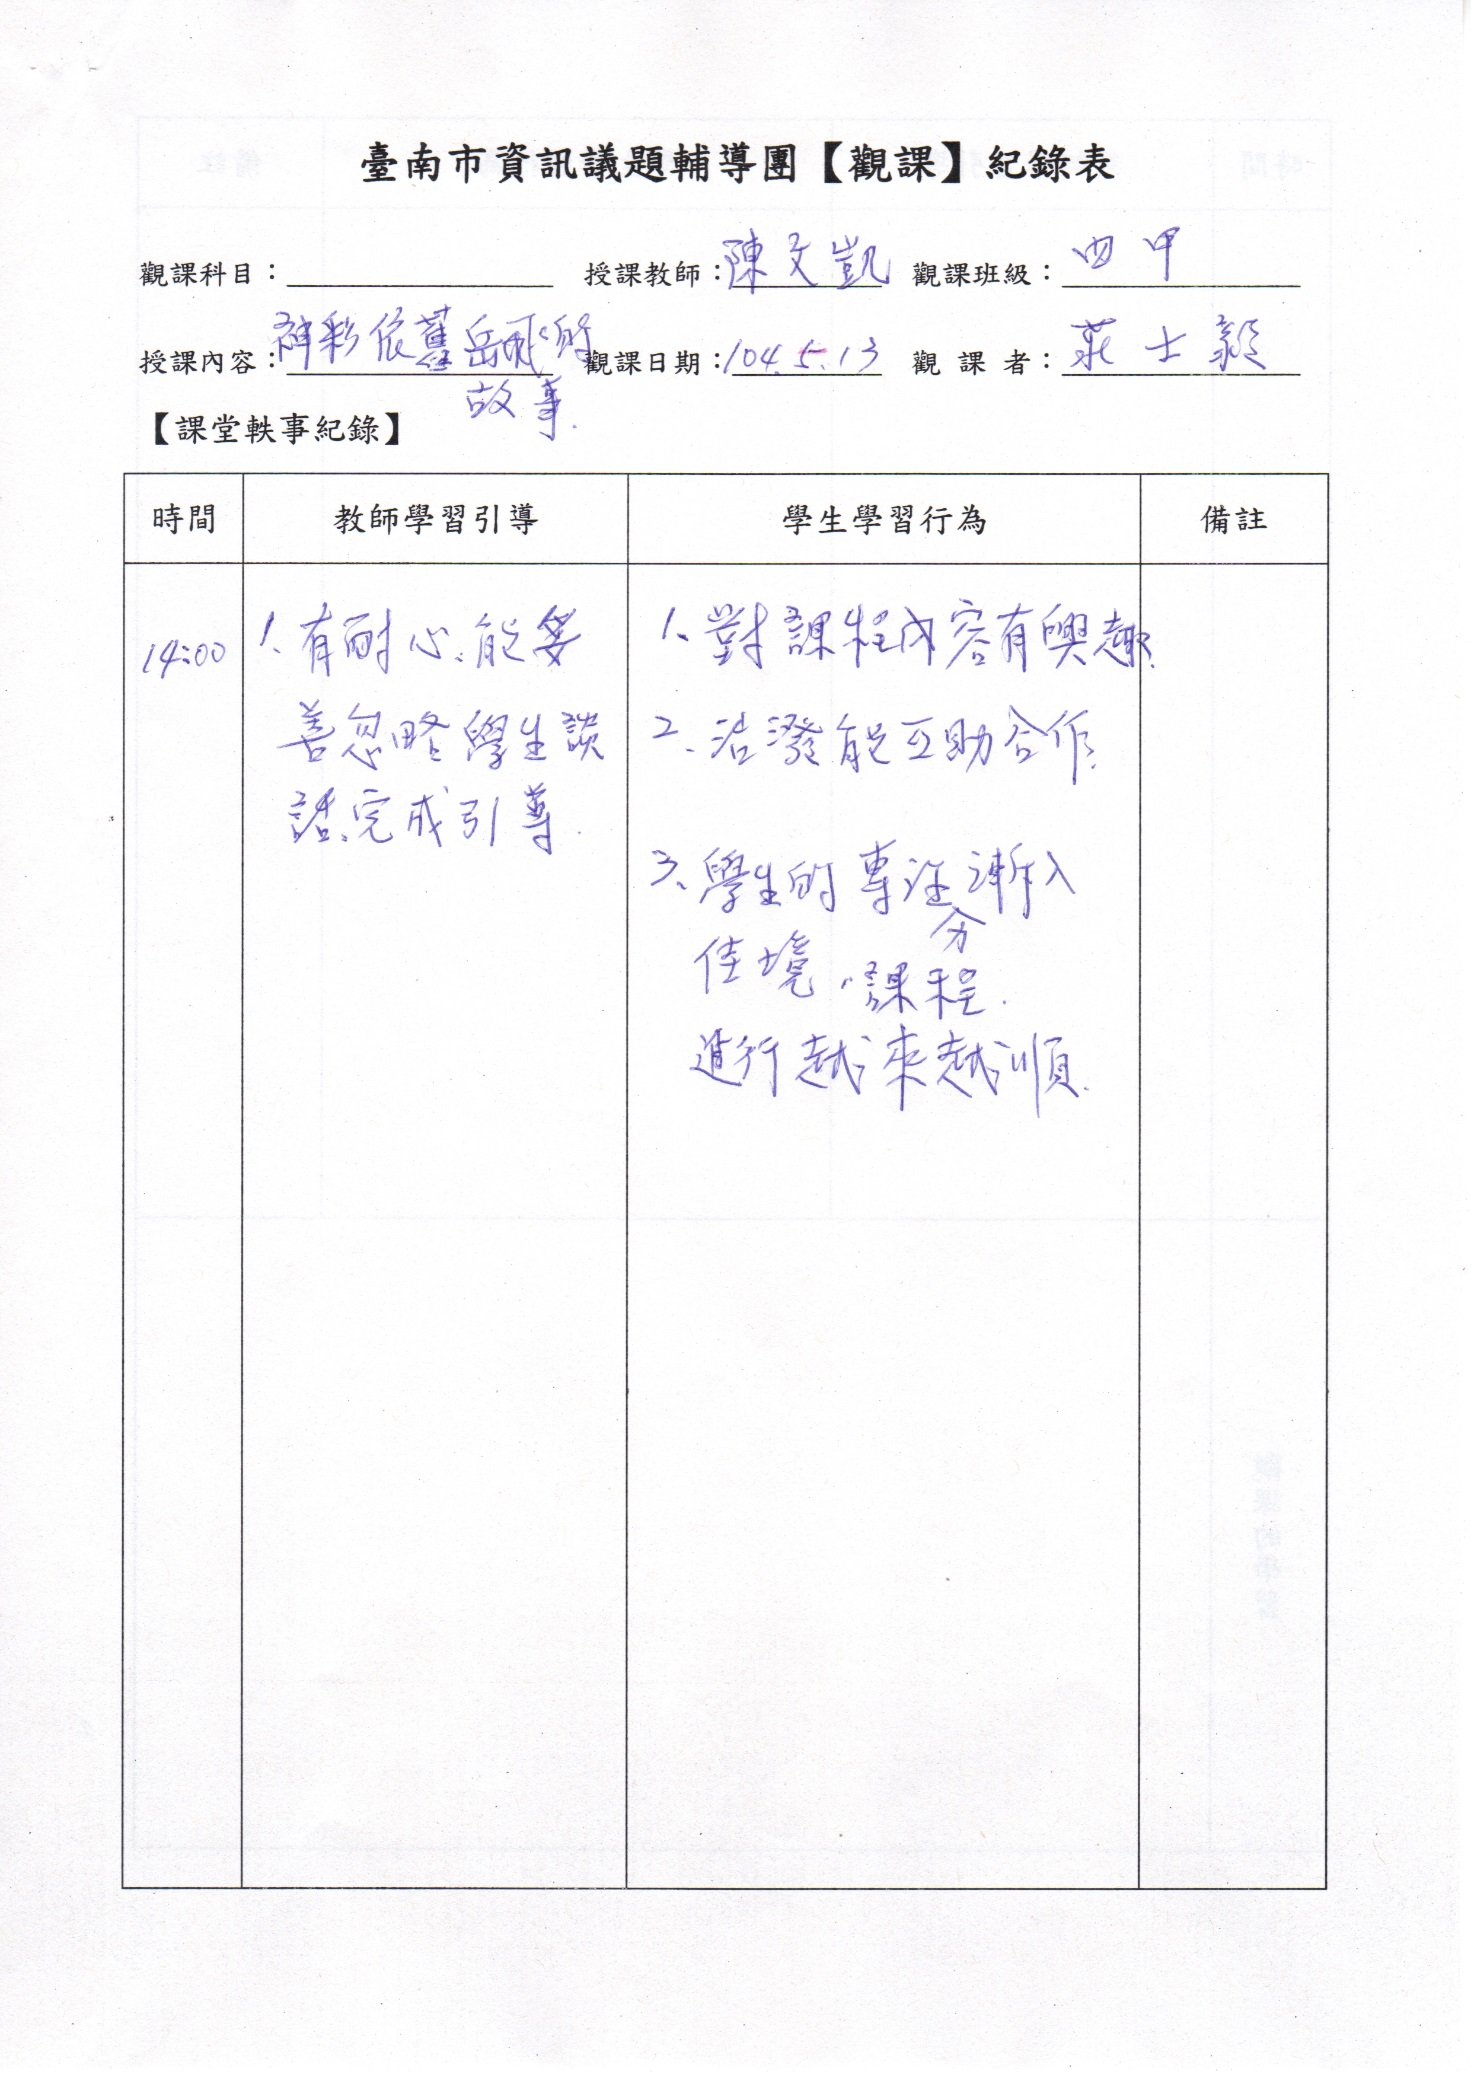 臺南市資訊議題輔導團【觀課】紀錄表
觀課科目： 授課教師：陳文凱 觀課班級：四甲
授課內容：神彩依舊岳飛的故事. 觀課日期：104.5.13 觀課者：莊士
【課堂軼事紀錄】
時間 教師學習引導 學生學習行為 備註
14:00
1.有耐心、能妥
善忽略學生談
話、完成引導.
1、對課程內容有興趣.
2、活潑能互助合作.
3、學生的專注漸入
佳境，課程.
進行越來越順.